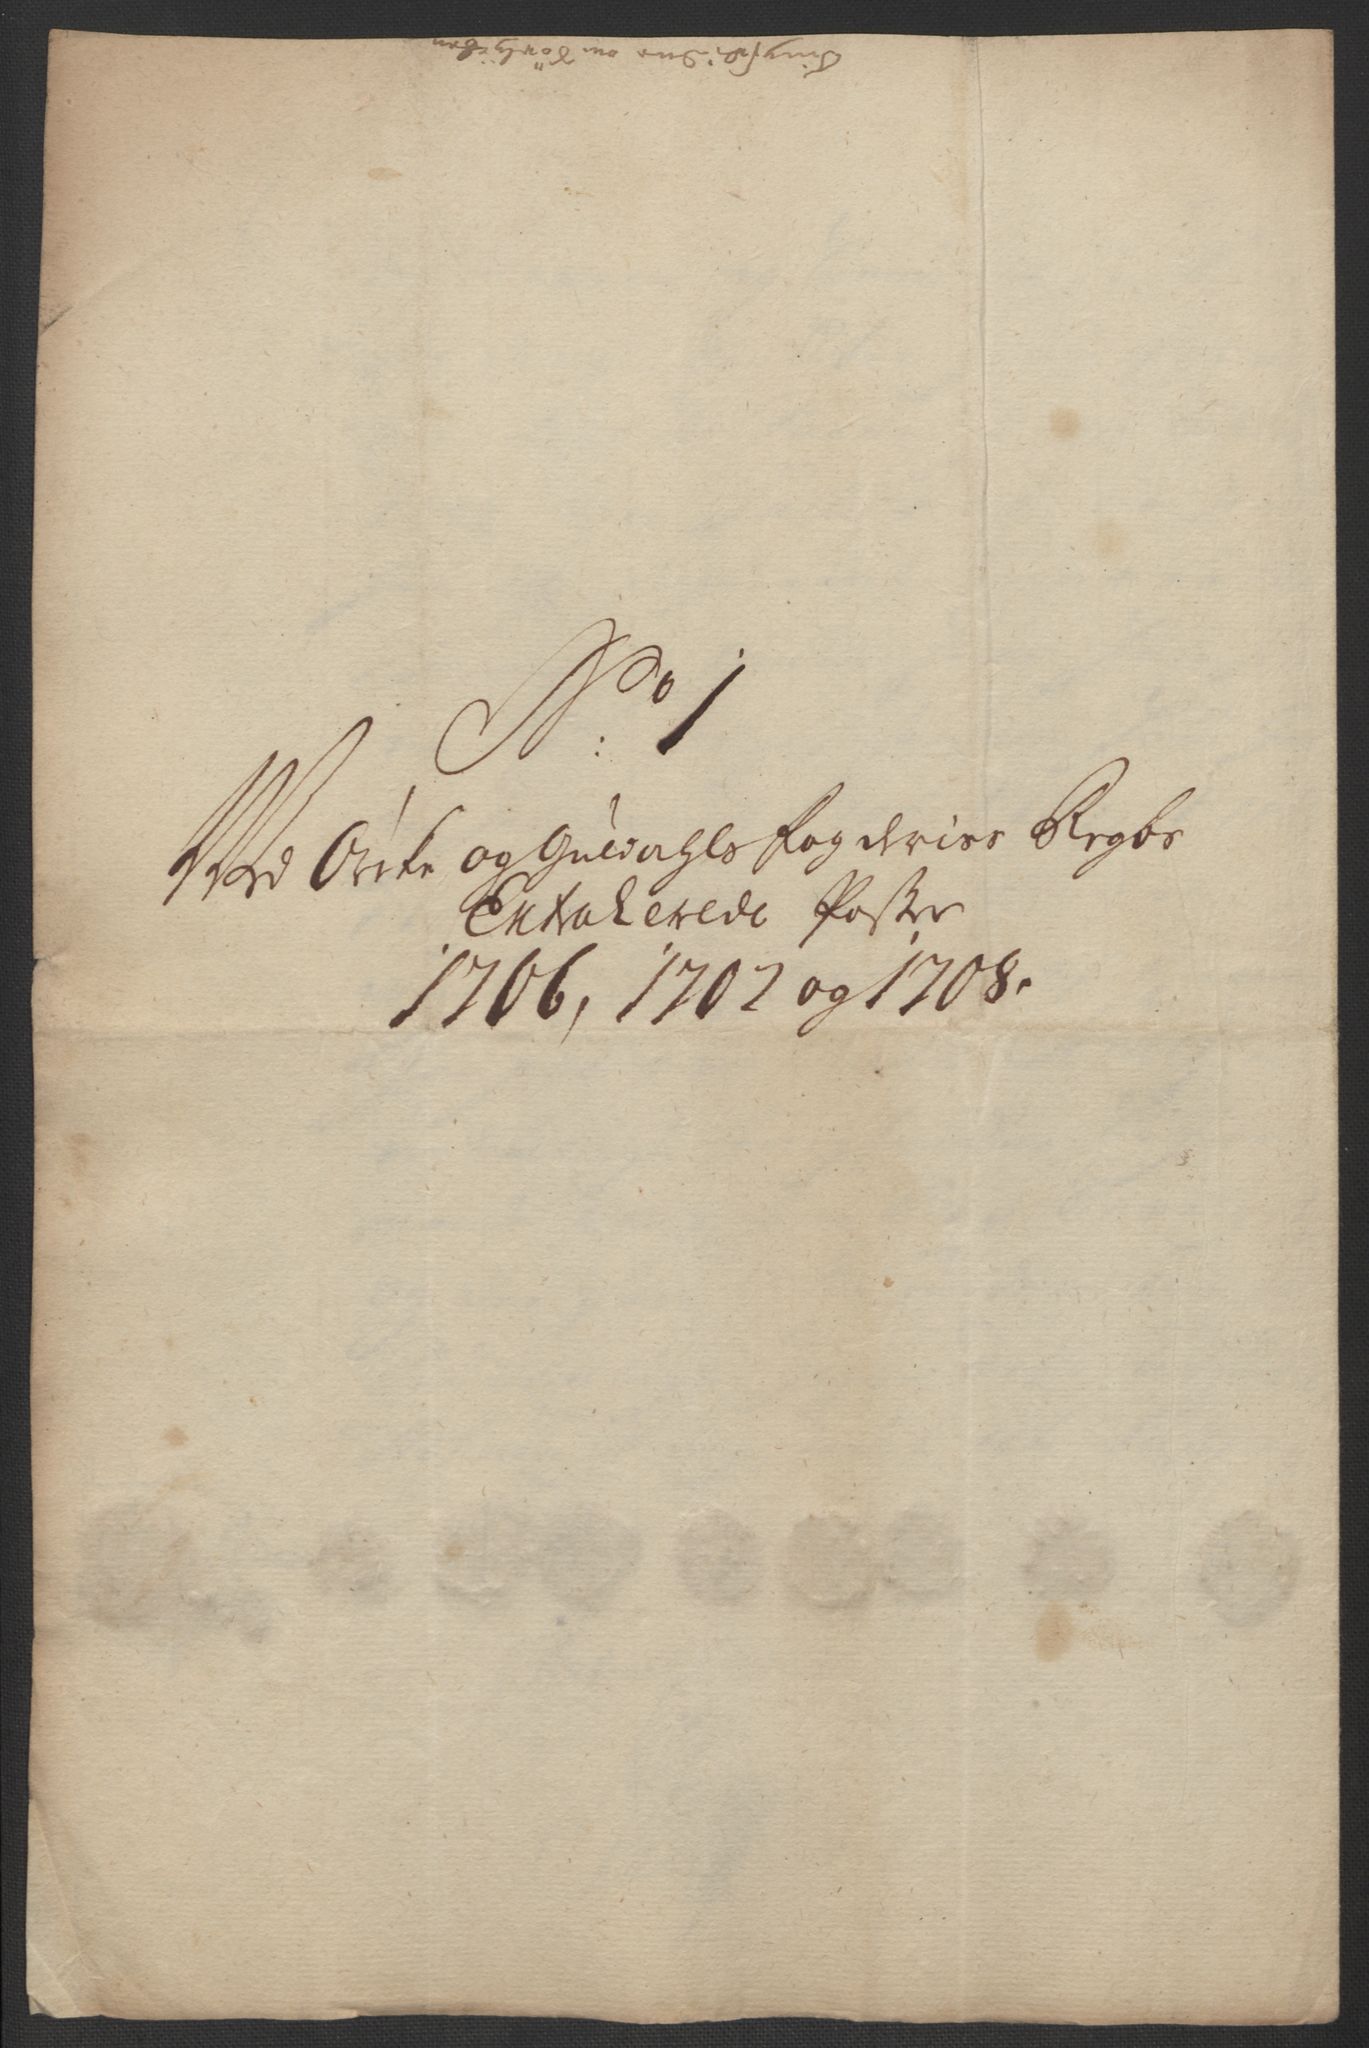 No: 1
Wed Orcke og Guldahls Fogderies Regbs
Extraherede Poster
1706, 1707 og 1708.